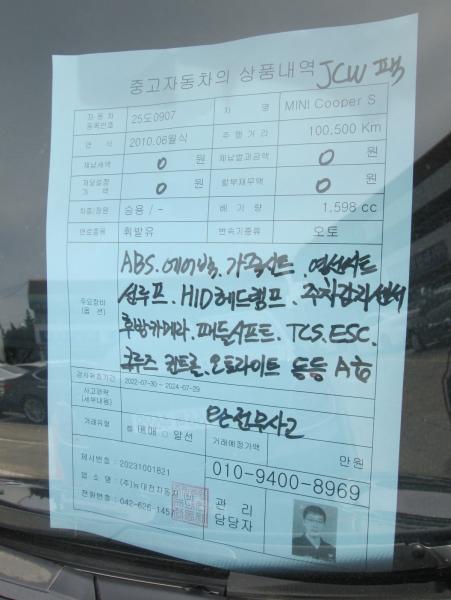 중고자동차의 상품내역 JCW 팩
자동차등록번호 25도0907 차 명 MINI Cooper S
연 식 2010.06월식 주행거리 100,500 Km
체납세액 0 원 체납범과금액 0 원
저당설정가액 0 원 할부채무액 0 원
차종/정원 승용 / - 배기량 1,598 cc
연료종류 휘발유 변속기종류 오토
주요장비(옵션)
ABS. 에어백. 가죽시트. 열선시트
썬루프. HID헤드램프. 주차감지센서
후방카메라. 패들시프트. TCS. ESC.
크루즈 컨트롤. 오토라이트 등등 A급
검사유효기간 2022-07-30 ~ 2024-07-29
사고관련(세부내용) 완전무사고
거래유형 매매 알선 거래예정가액 만원
제시번호 : 20231001821 010-9400-8969
업 소 명 : (주)뉴대전자동차
전화번호 : 042-626-1457
관 리
담당자